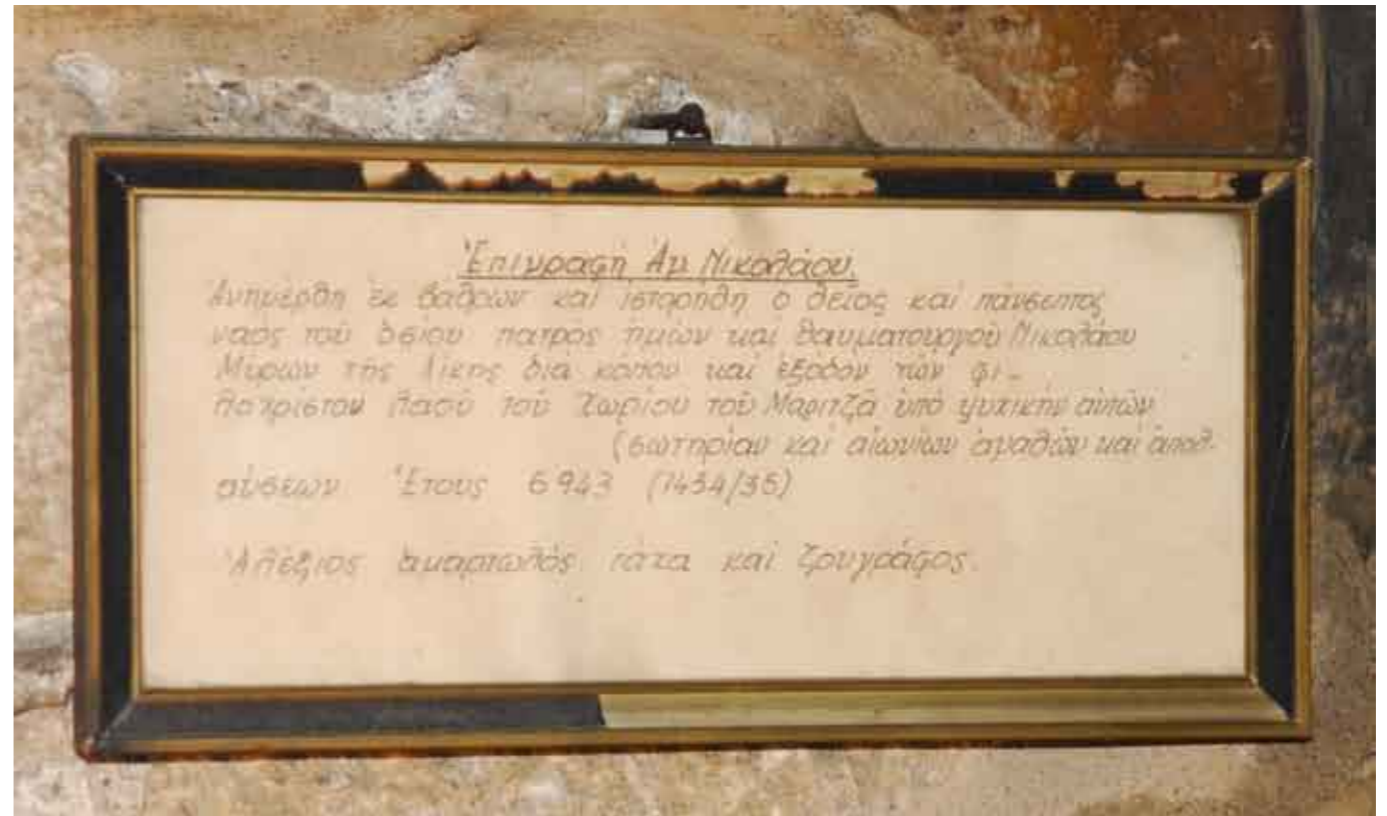 Ἐπιγραφή Ἁγ Νικολάου.
Ἀνηγέρθη ἐκ βάθρων καί ἱστορήθη ὁ θεῖος καί πάνσεπτος
ναός τοῦ ὁσίου πατρός ἡμῶν καί θαυματουργοῦ Νικολάου
Μύρων τῆς Λίκης διά κόπου καί ἐξόδον τῶν φι-
λοχρίστον λαοῦ τοῦ χωρίου τοῦ Μαριτζᾶ ὑπό ψυχικήν αὐτῶν
(σωτηρίαν καί αἰωνίων ἀγαθῶν καί ἀπολ-
αύσεων Ἔτους 6943 (1434/35)
Ἀλέξιος ἁμαρτωλός τάχα καί ζουγράφος.